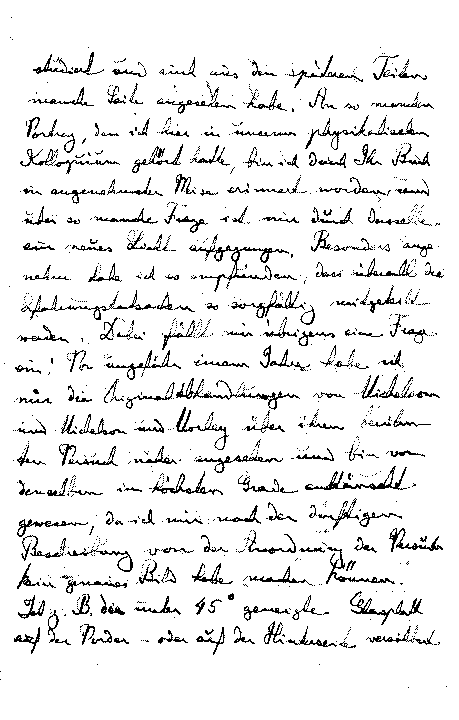 studiert und auch aus den späteren Teilen
manche Seite angesehen habe. An so manchen
Vortrag, den ich hier in unserem physikalischen
Kolloquium gehört hatte, bin ich durch Ihr Buch
in angenehmster Weise erinnert worden, und
über so manche Frage ist mir durch dasselbe
ein neues Licht aufgegangen. Besonders ange-
nehm habe ich es empfunden, dass überall die
Erfahrungstatsachen so sorgfältig mitgeteilt
werden. Dabei fällt mir übrigens eine Frage
ein! Vor ungefähr einem Jahre habe ich
mir die Originalabhandlungen von Michelson
und Michelson und Morley über ihren berühm-
ten Versuch näher angesehen und bin von
denselben im höchsten Grade enttäuscht
gewesen, da ich mir nach der dürftigen
Beschreibung von der Anordnung der Versuche
kein genaues Bild habe machen können.
Ist z. B. die unter 45° geneigte Glasplatte
auf der Vorder- oder auf der Hinterseite versilbert